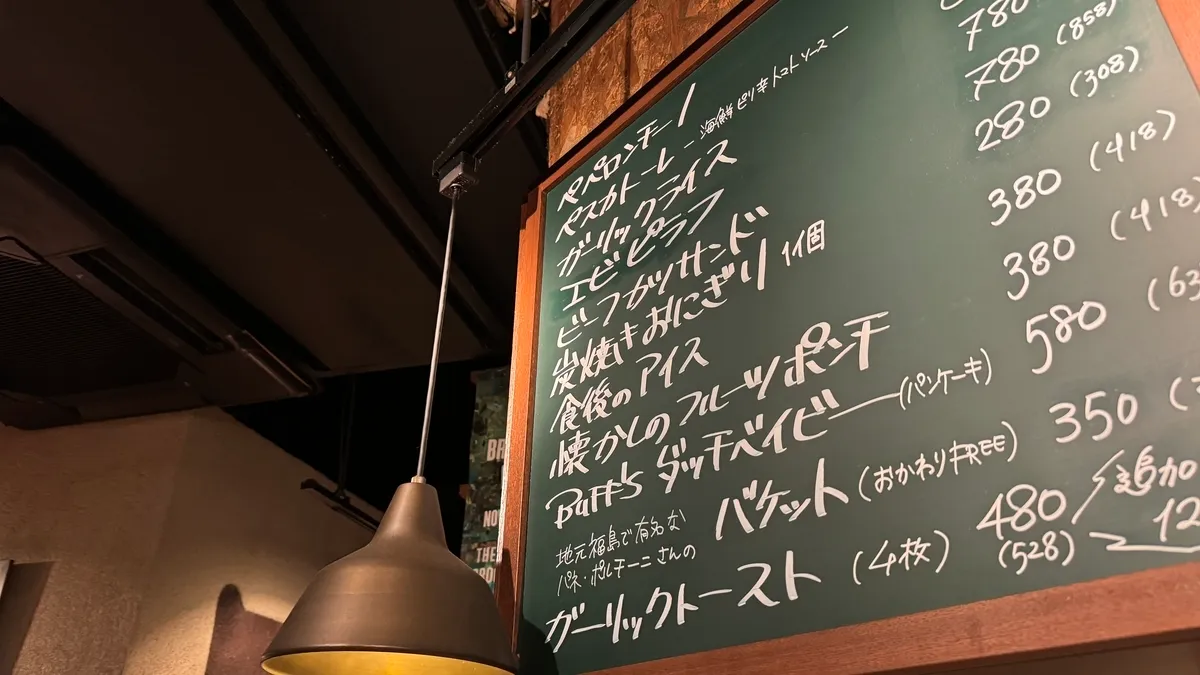 ペペロンチーノ
ペスカトーレ - 海鮮ピリ辛トマトソース -
ガーリックライス 780
エビピラフ 780 (858)
ビーフカツサンド
炭焼きおにぎり 1個 280 (308)
食後のアイス 380 (418)
懐かしのフルーツポンチ 380 (418)
Buff's ダッチベイビー (パンケーキ) 580 (63
地元福島で有名な
パネ・ポルチーニさんの バケット (おかわりFREE) 350
ガーリックトースト (4枚) 480 (528)
追加
12
BR
NO
THE